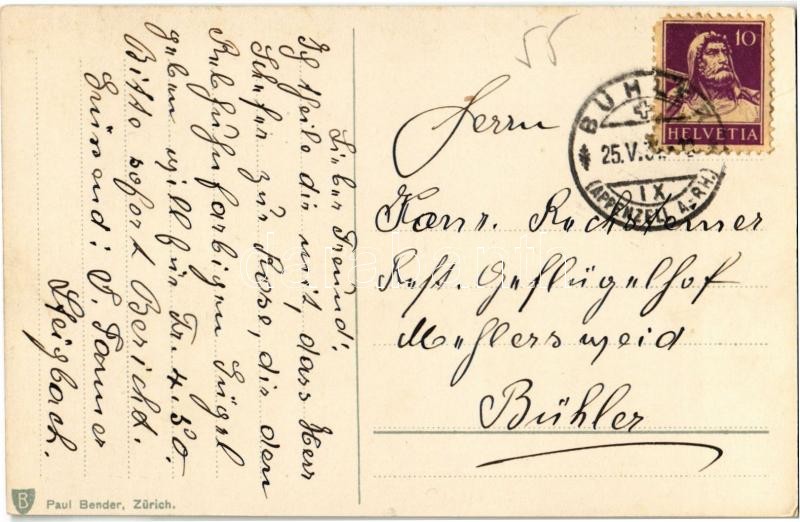 Lieber Freund!
Ich theile dir mit, dass Herr
Schefer zur Rose, dir den
Rebhuhnfarbigen Güggel
geben will für Fr. 4.50.
Bitte sofort Bericht.
Grüssend: J. Tanner
Steigbach.
55
10
HELVETIA
BÜHLER
25.V.
IX
(APPENZELL A.-RH.)
Herrn
Konr. Rechsteiner
Rest. Geflügelhof
Bühler
B
Paul Bender, Zürich.
darabanth